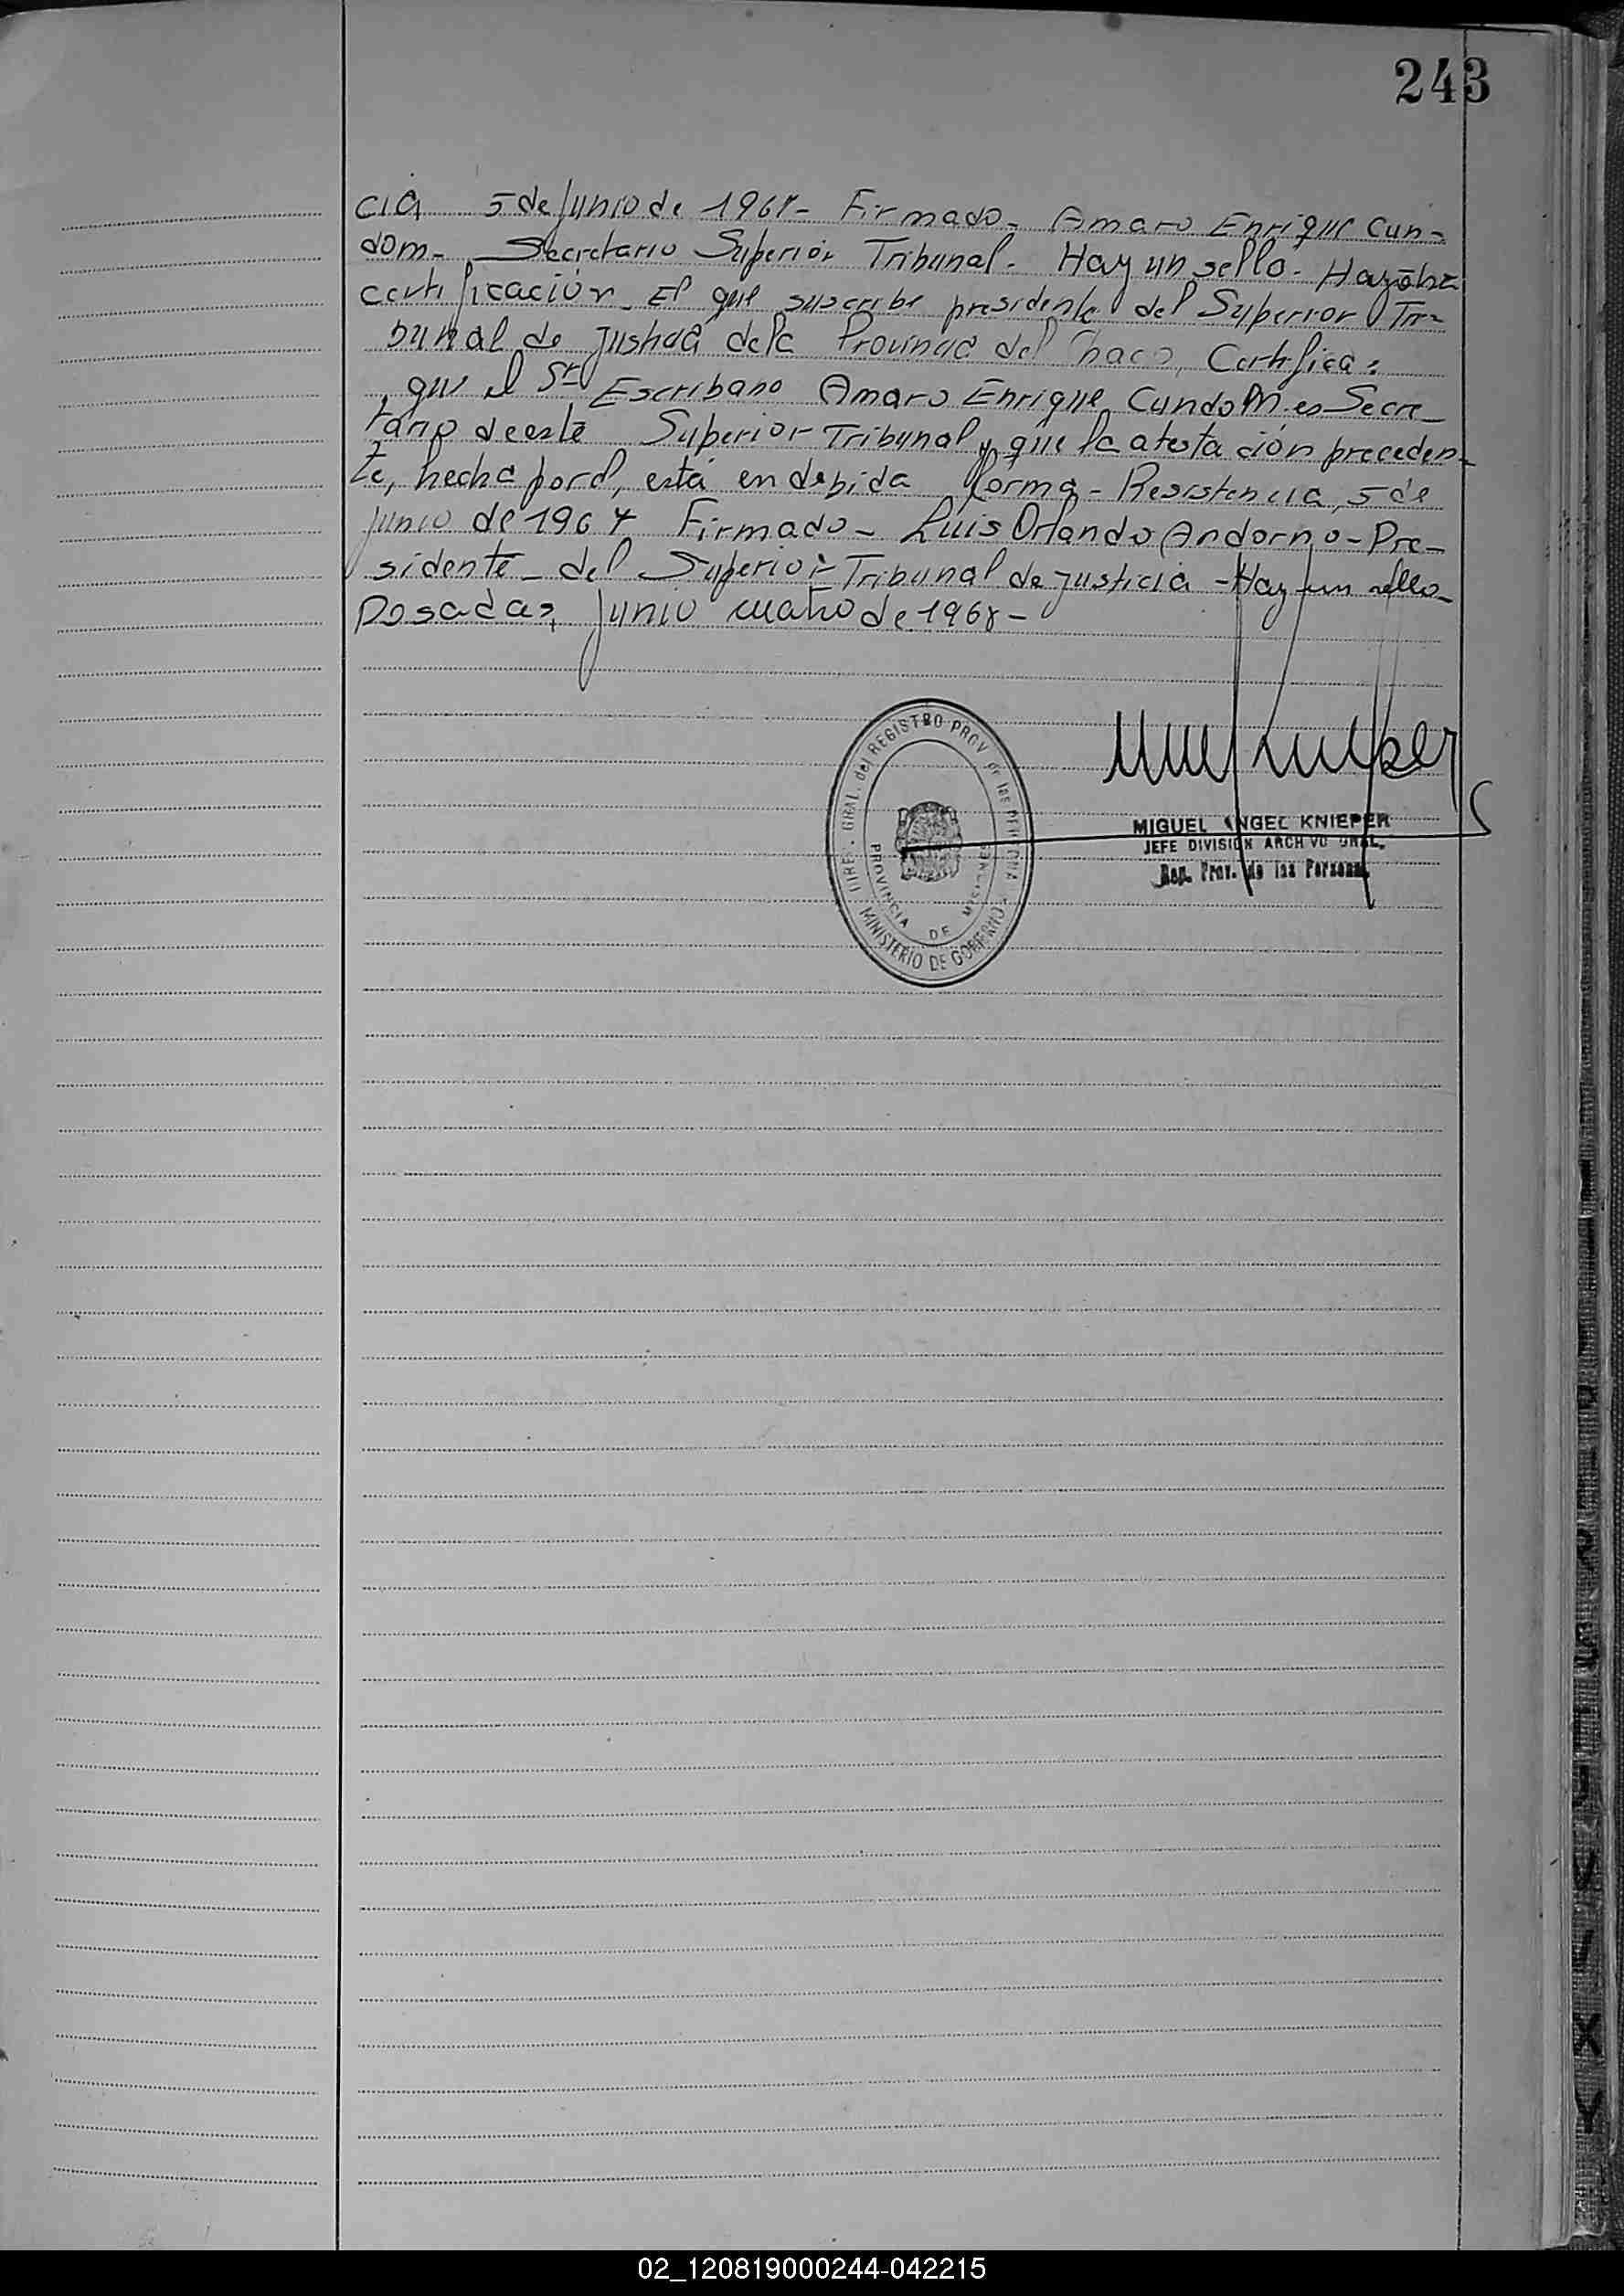 243
cia 5 de Junio de 1967- Firmado- Amaro Enrique Cun-
dom- Secretario Superior Tribunal- Hay un sello- Hay otra
certificación- El que suscribe presidente del Superior Tri-
bunal de Justicia de la Provincia del Chaco, Certifica:
que el Sr Escribano Amaro Enrique Cundom es Secre-
tario de este Superior Tribunal y que la atestación preceden-
te, hecha por él, está en debida forma- Resistencia, 5 de
Junio de 1967 Firmado- Luis Orlando Andorno- Pre-
sidente- del Superior Tribunal de Justicia- Hay un sello-
Posadas, Junio cuatro de 1968-
DIRE. GRAL. del REGISTRO PROV de las PERSONAS
PROVINCIA DE MISIONES
MINISTERIO DE GOBIERNO
MIGUEL ANGEL KNIEPER
JEFE DIVISION ARCHIVO GRAL.
Reg. Prov. de las Personas
02_120819000244-042215